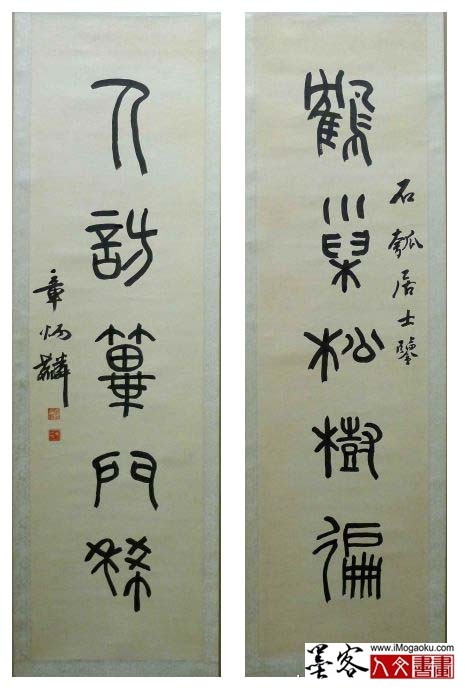 鶴巢松樹徧
石瓠居士鑒
人訪篳門稀
章炳麟
墨客
www.iMogaoku.com
人文書畫